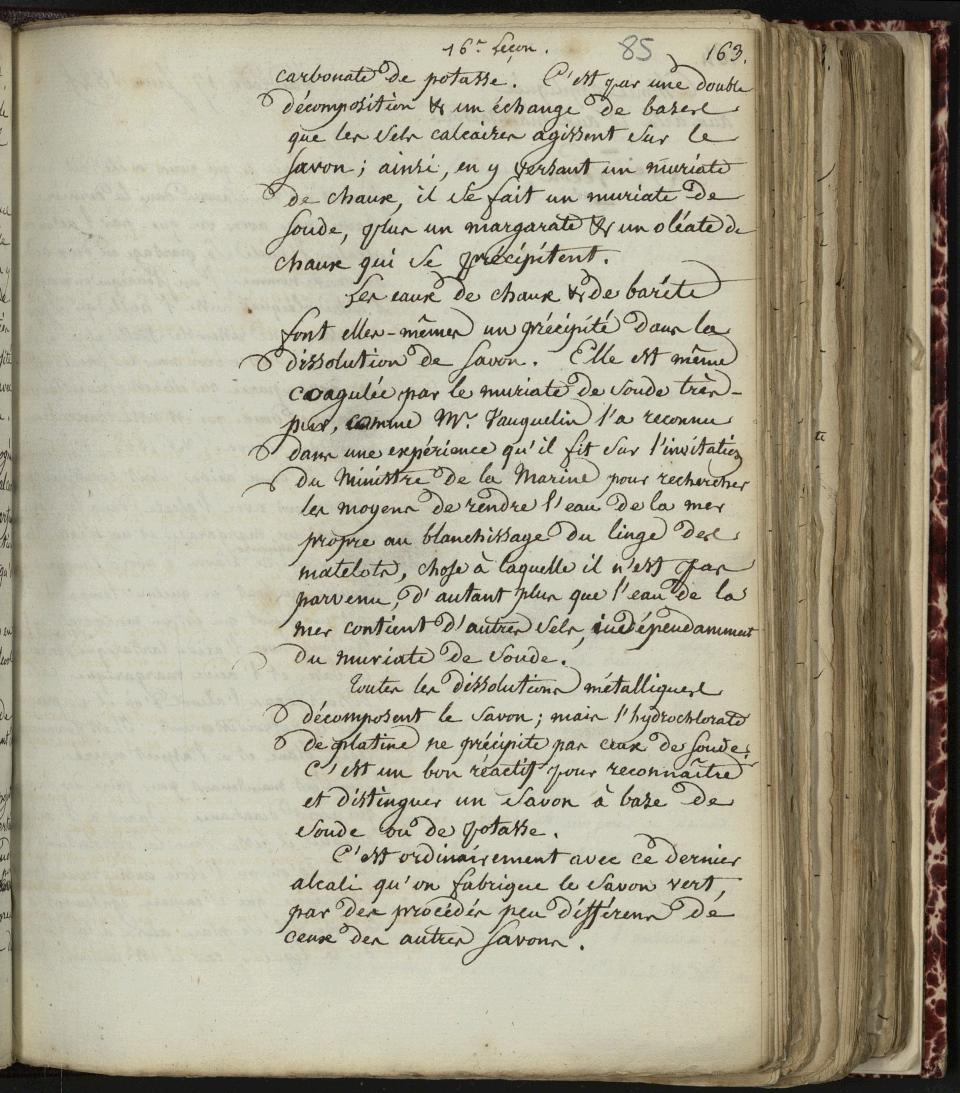 16e Leçon. 85 163.
carbonate de potasse. C'est par une double
décomposition & un échange de bases
que les sels calcaires agissent sur le
savon; ainsi, en y versant un muriate
de chaux, il se fait un muriate de
soude, plus un margarate & un oléate de
chaux qui se précipitent.
Les eaux de chaux & de barite
font elles-mêmes un précipité dans la
dissolution de savon. Elle est même
coagulée par le muriate de soude très-
pur, comme Mr. Vauquelin l'a reconnu
dans une expérience qu'il fit sur l'invitation
du Ministre de la Marine pour rechercher
les moyens de rendre l'eau de la mer
propre au blanchissage du linge des
matelots, chose à laquelle il n'est pas
parvenu, d'autant plus que l'eau de la
mer contient d'autres sels, indépendamment
du muriate de soude.
Toutes les dissolutions métalliques
décomposent le savon; mais l'hydrochlorate
de platine ne précipite pas ceux de soude;
C'est un bon réactif pour reconnaître
et distinguer un savon à base de
soude ou de potasse.
C'est ordinairement avec ce dernier
alcali qu'on fabrique le savon vert,
par des procédés peu différens de
ceux des autres savons.